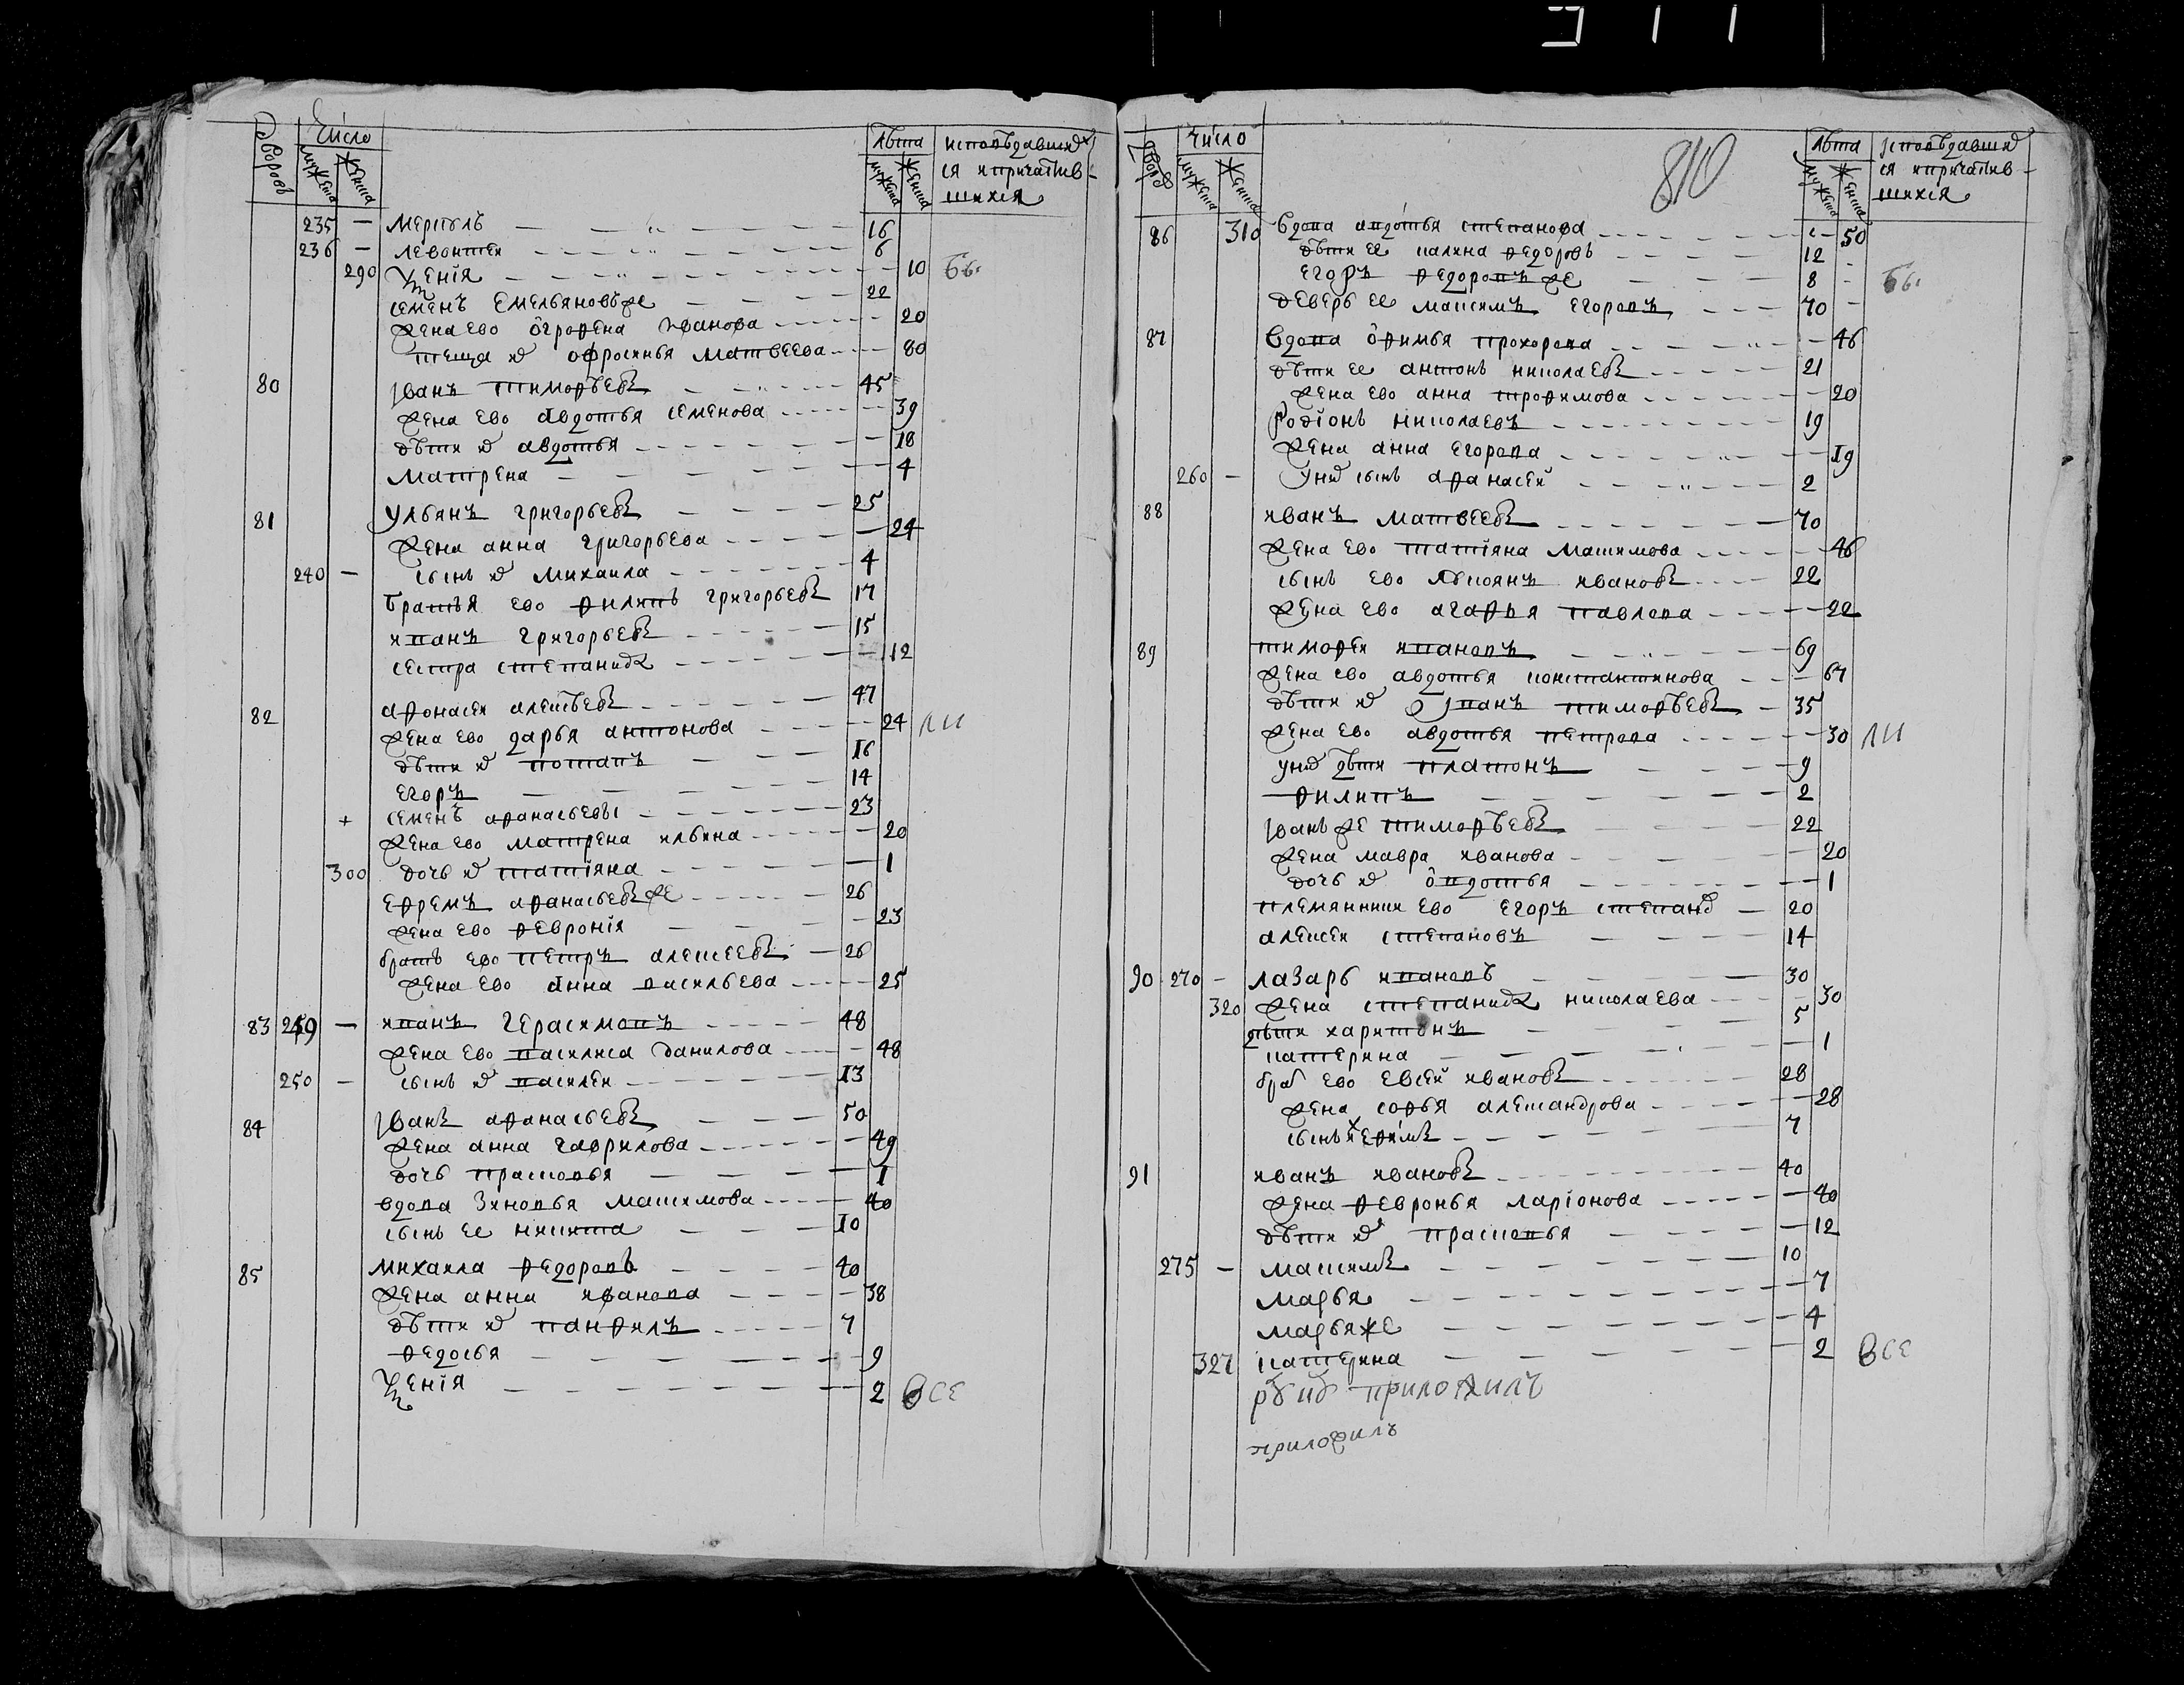 Дворовъ Число Лѣта исповѣдавших
мужеска женска мужеска женска ся и причастив-
шихся
235 — Меркулъ — 16
236 — Левонтеи — 6
290 Ксенiя — 10
семенъ Емельяновъ же — 22
жена ево огрофена Иванова — 20
теща их офросинья Матвеева — 80
80 Iванъ тимофѣевъ — 45
жена ево Авдотья семенова — 39
дѣти их авдотья — 18
Матрена — 4
81 Ульянъ григорьевъ — 25
жена анна григорьева — 24
240 — сынъ их Михаила — 4
братья ево филипъ григорьевъ 17
иванъ григорьевъ — 15
сестра степанида — 12
82 афонасеи алексѣевъ — 47
жена ево дарья антонова — 24
дѣти их потапъ — 16
егоръ — 14
+ семенъ афанасьевы — 23
жена ево матрена ильина — 20
300 дочь их татiяна — 1
ефремъ афанасьевъ же — 26
жена ево февронiя — 23
братъ ево петръ алексеевъ — 26
жена ево Анна васильева — 25
83 249 — иванъ герасимовъ — 48
жена ево василиса данилова — 48
250 — сынъ их василеи — 13
84 Iванъ афанасьевъ — 50
жена анна гаврилова — 49
дочь прасковья — 1
вдова Зиновья максимова — 40
сынъ ее никита — 10
85 михаила федоровъ — 40
жена анна иванова — 38
дѣти их панфилъ — 7
федосья — 9
Ксенiя — 2 Все
810
дворов Число Лѣта исповѣдавших
мужеска женска мужеска женска ся и причастив-
шихся
86 310 Вдова авдотья степанова — 50
дѣти ее калина федоровъ — 12
егоръ федоровъ же — 8
деверь ее максимъ егоровъ — 70
87 Вдова офимья прохорова — 46
дѣти ее антонъ николаевъ — 21
жена ево анна трофимова — 20
Родiонъ николаевъ — 19
жена анна егорова — 19
260 — У них сынъ афанасеи — 2
88 иванъ матвеевъ — 70
жена ево татiяна максимова — 46
сынъ ево Лукоянъ ивановъ — 22
жена ево агафья павлова — 22
89 тимофеи ивановъ — 69
жена ево авдотья константинова — 67
дѣти их Iванъ тимофѣевъ — 35
жена ево авдотья петрова — 30
у них дѣти платонъ — 9
филипъ — 2
Iванъ же тимофѣевъ — 22
жена мавра иванова — 20
дочь их овдотья — 1
племянники ево егоръ степанов — 20
алексеи степановъ — 14
90 270 — лазарь ивановъ — 30
320 жена степанида николаева — 30
дѣти харитонъ — 5
катерина — 1
брат ево евсеи ивановъ — 28
жена софья александрова — 28
сынъ ефимъ — 7
91 иванъ ивановъ — 40
жена февронья ларiонова — 40
дѣти их прасковья — 12
275 — максимъ — 10
марья — 7
марья же — 4
327 катерина — 2 Все
руку приложилъ
приложилъ